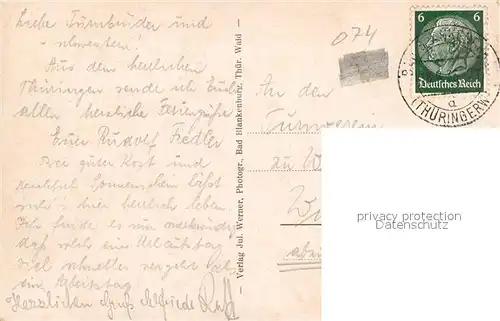 Liebe Turnbrüder und
schwestern!
Aus dem herrlichen
Thüringen sende ich Euch
allen herzliche Feriengrüße
Euer Rudolf Fiedler
Bei guter Kost und
Sonnenschein läßt
sich's hier herrlich leben.
Ich finde es nur merkwürdig
daß solch ein Urlaubstag
viel schneller vergeht als
ein Arbeitstag
Herzlichen Gruß Elfriede
Verlag Jul. Werner, Photogr., Bad Blankenburg, Thür. Wald
074
An den
Turnverein
zu
6 6
Deutsches Reich
a
(THÜRINGERW.
privacy protection
Datenschutz